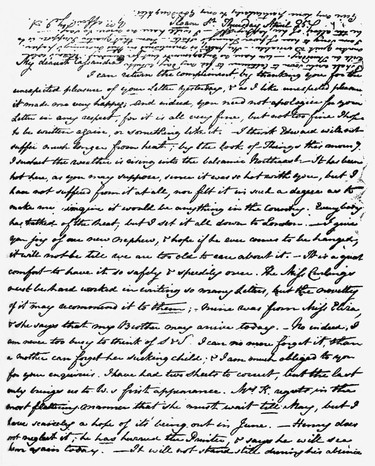 Sloane St. Thursday April 25
My dearest Cassandra
I can return the compliment by thanking you for the
unexpected pleasure of your Letter yesterday, & as I like unexpected pleasure
it made me very happy; And indeed, you need not apologise for your
Letter in any respect, for it is all very fine, but not too fine I hope
to be written again, or something like it. I think Edward will not
suffer much longer from heat; by the look of Things this morng
I suspect the weather is rising into the balsamic Northeast. It has been
hot here, as you may suppose, since it was so hot with you, but I
have not suffered from it at all, nor felt it in such a degree as to
make me imagine it would be anything in the Country. Everybody
has talked of the heat, but I set it all down to London. I give
you joy of our new nephew, & hope if he ever comes to be hanged,
it will not be till we are too old to care about it. It is a great
comfort to have it so safely & speedily over. The Miss Curlings
must be hard worked in writing so many Letters, but the novelty
of it may recommend it to them; mine was from Miss Eliza,
& she says that my Brother may arrive today. No indeed, I
am never too busy to think of S&S. I can no more forget it, than
a mother can forget her sucking child; & I am much obliged to you
for your enquiries. I have had two sheets to correct, but the last
only brings us to W.s first appearance. Mrs K. regrets in the
most flattering manner that she must wait till May, but I
have scarcely a hope of its being out in June. Henry does
not neglect it; he has hurried the Printer, & says he will see
him again today. It will not stand still during his absence